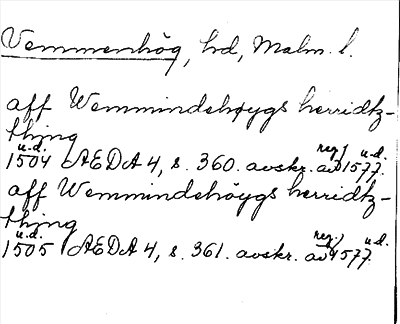 Vemmenhög, hd, Malm. l.
aff Wemmindshøygs herridtz-
thing
u.d. reg.) u.d.
1504 AEDA 4, s. 360. avskr. av 1577.
aff Wemmindshöygs herridtz-
thing
u.d. reg.) u.d.
1505 AEDA 4, s. 361. avskr. av 1577.